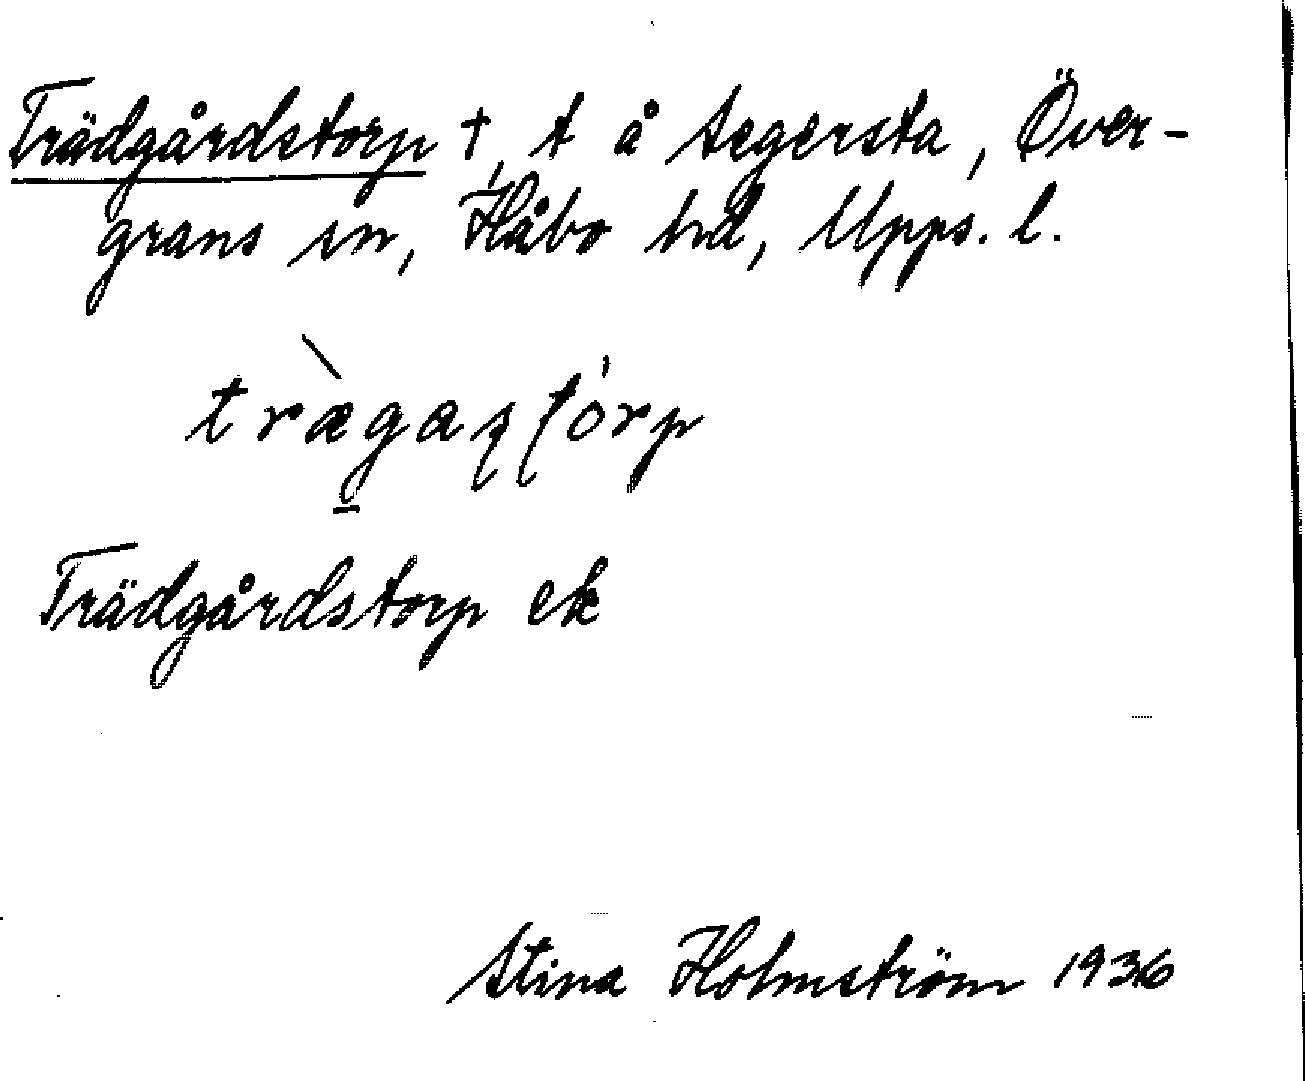 Trädgårdstorp †, t å Segersta, Över-
grans sn, Håbo hd, Upps. l.
trægaʂʈorp
Trädgårdstorp ek
Stina Holmström 1936